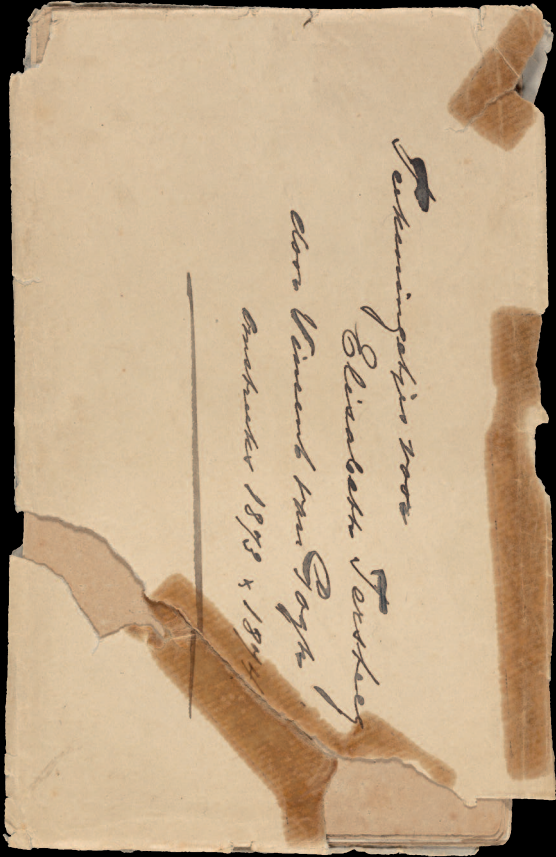 Teekeningetjes voor
Elisabeth Tersteeg
door Vincent van Gogh
omstreeks 1873 & 1874